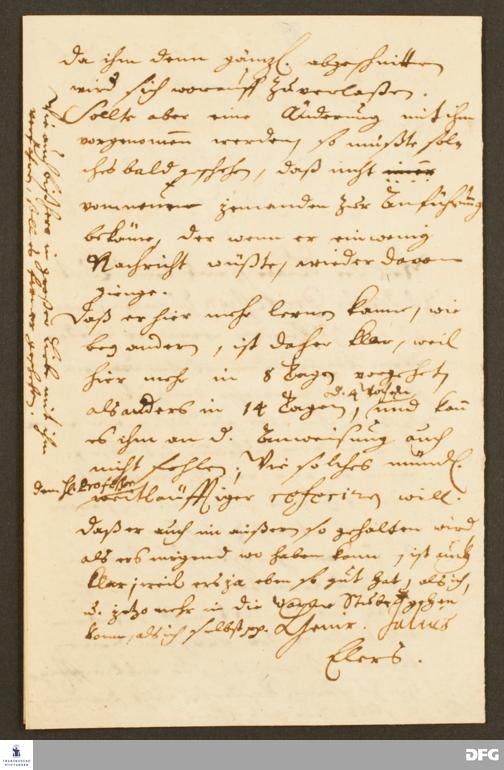 da ihm denn gäntzl. abgeschnitten
wird sich worauff zuverlaßen.
Sollte aber eine Änderung mit ihm
vorgenommen werden, so müßte sol-
ches bald geschehen, daß nicht
vom neuen jemanden zur Anführung
bekäme, der wenn er ein wenig
Nachricht wüßte, wieder davon
gienge.
Daß er hier mehr lernen kann, wie
bey andern, ist daher klar, weil
hier mehr in 8 Tagen vorgehet,
als anders in 14 Tagen, und kan
es ihm an d. Anweisung auch
nicht fehlen; Wie solches mündl.
dem H. Professor weitläufftiger referiren will.
Daß er auch im äußern so gehalten wird
als ers nirgend wo haben kann, ist auch
klar, weil ers ja eben so gut hat, als ich,
u. jetzo mehr in die Stube gehen
kann, als ich selbst pp. Henr. Julius
Elers.
FRANCKESCHE
STIFTUNGEN
DFG